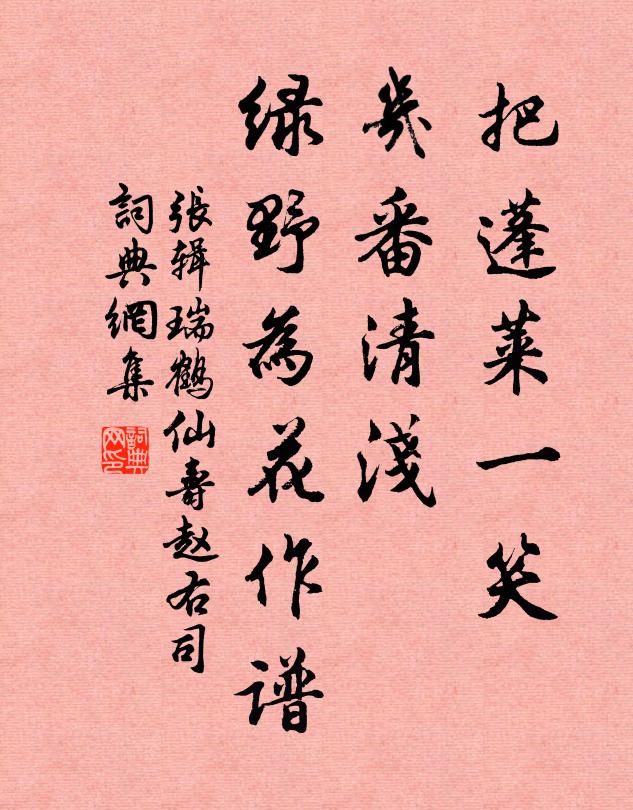 把蓬莱一笑
几番清淺
绿野為花作谱
張辑瑞鶴仙壽赵右司
詞典網集
詞典網印